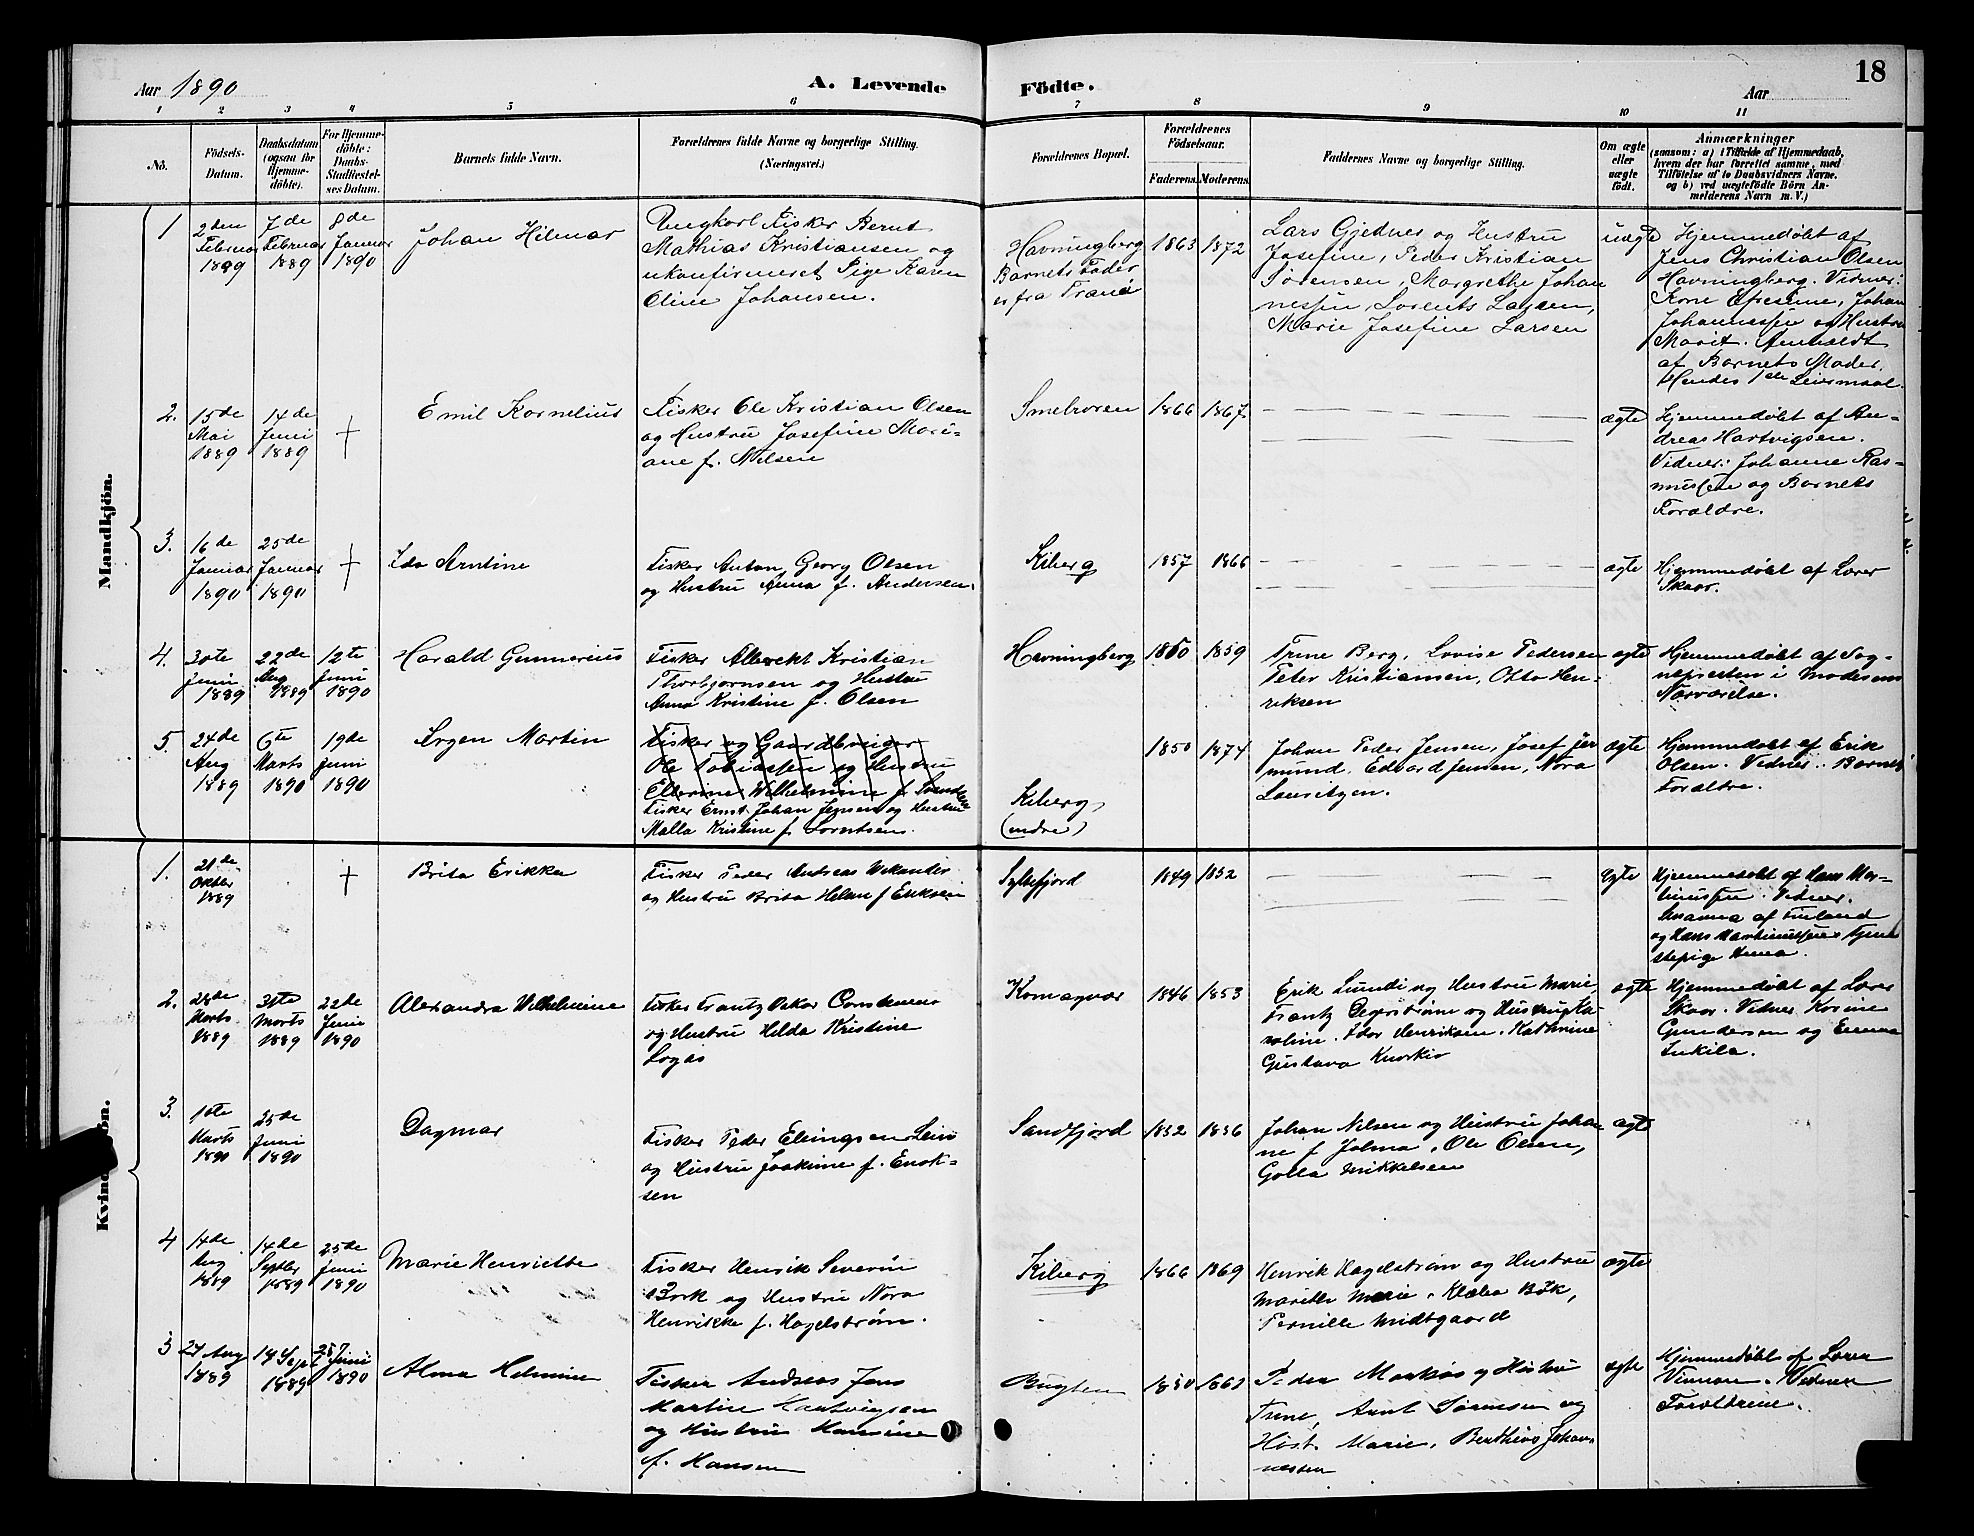 Aar 1890
A. Levende Födte.
Aar
18
1 2 3 4 5 6 7 8 9 10 11
No.
Födsels-
Datum.
Daabsdatum
(ogsaa for
Hjemme-
döbte).
For Hjemme-
döbte:
Daabs-
Stadfæstel-
ses Datum.
Barnets fulde Navn.
Forældrenes fulde Navne og borgerlige Stilling.
(Næringsvei.)
Forældrenes Bopæl.
Forældrenes
Födselsaar.
Faderens. Moderens.
Faddernes Navne og borgerlige Stilling.
Om ægte
eller
uægte
födt.
Anmærkninger
(saasom: a) i Tilfælde af Hjemmedaab,
hvem der har forrettet samme, med
Tilföielse af to Daabsvidners Navne,
og b) ved uægtefödte Börn An-
melderens Navn m. V.)
Mandkjön.
1
2den
Februar
1889
7de
Februar
1889
8de
Januar
1890
Johan Hilmar
Ungkarl Fisker Bernt
Mathias Kristiansen og
ukonfirmeret Pige Karen
Oline Johansen.
Havningberg
Barnets Fader
er fra Tranö
1863 1872
Lars Gjednes og Hustru
Josefine, Peder Kristian
Sörensen, Margrethe Johan
nessen, Lorents Larsen,
Marie Josefine Larsen
uægte
Hjemmedöbt af
Jens Christian Olsen
Havningberg. Vidner:
Kone Efresine, Johan
Johannessen og Hustru
Marit. Anmeldt
af Barnets Moder.
Hendes 1ste Leiermaal.
2.
15de
Mai
1889
14de
Juni
1889
+
Emil Kornelius
Fisker Ole Kristian Olsen
og Hustru Josefine Mari-
ane f. Nilsen
Smelroren
1866 1867
ægte
Hjemmedöbt af An-
dreas Hartvigsen.
Vidner: Johanne Ras-
mussen og Barnets
Forældre.
3.
16de
Januar
1890
25de
Januar
1890
+
Ida Arntine
Fisker Anton Georg Olsen
og Hustru Anna f. Andersen.
Kiberg
1857 1866
ægte
Hjemmedöbt af Lærer
Skaar.
4.
30te
Juni
1889
22de
Aug
1889
12te
Juni
1890
Harald Gunnerius
Fisker Albrekt Kristian
Thorbjornsen og Hustru
Anna Kristine f. Olsen
Havningberg
1860 1859
Trine Berg, Lovise Pedersen
Peter Kristiansen, Otto Hen-
riksen
ægte
Hjemmedöbt af Sog-
nepresten i Moderens
Nærværelse.
5.
24de
Aug
1889
6te
Marts
1890
19de
Juni
1890
Örgen Martin
Fisker og Gaardbruger
Ole Tobiassen og Hustru
Ellevine Wilhelmine f.
Fisker Ernst Johan Jensen og Hustru
Malla Kristine f. Lorntsen.
Kiberg
(indre)
1850 1874
Johan Peder Jensen, Josef Jer
mund, Edvard Jensen, Nora
Lauritzen.
ægte
Hjemmedöbt af Erik
Olsen. Vidner: Barnets
Forældre.
Kvindekjön.
1.
21de
Oktbr
1889
+
Brita Erikka
Fisker Peder Andreas Wekander
og Hustru Brita Helene f Eriksen
Syltefjord
1849 1852
ægte
Hjemmedöbt af Hans Mar-
tinussen. Vidner:
Susanna af Finland
og Hans Martinussens Tjene
stepige Anna.
2.
28de
Marts
1889
31te
Marts
1889
22de
Juni
1890
Alexandra Wilhelmine
Fisker Frantz Oskar
og Hustru Hilda Kristine
Komagvær
1846 1853
Erik Lundi og Hustru Marie,
Frantz og Hustru Ka-
roline. Henriksen, Kathrine
Gustava
ægte
Hjemmedöbt af Lærer
Skaar. Vidner Karine
Gundersen og Emma
Inkila.
3.
10te
Marts
1890
25de
Juni
1890
Dagmar
Fisker Peder Ellingsen Lein
og Hustru Joakime f. Enok-
sen
Sandfjord
1852 1856
Johan Nilsen og Hustru Johan
ne f Jolma, Ole Olsen,
Golla Mikkelsen
ægte
4
14de
Aug
1889
14de
Septbr
1889
25de
Juni
1890
Marie Henriette
Fisker Henrik Severin
Bork og Hustru Nora
Henrikke f. Hagelström.
Kiberg
1866 1869
Henrik Hagelström og Hustru
Marith Marie, Klæba Bök,
Pernille Midtgaard
ægte
5
27 Aug
1889
14 Sept
1889
25 Juni
1890
Alma Helmine
Fisker Andreas Jens
Martin Hartvigsen
og Hustru Hansine
f. Hansen
Bugten
1850 1863
Peder Markus og Hustru
Trine, Arnt Sörensen og
Hust. Marie, Berthins Johan-
nessen
ægte
Hjemmedöbt af Lærer
Vinnan. Vidner
Forældrene.